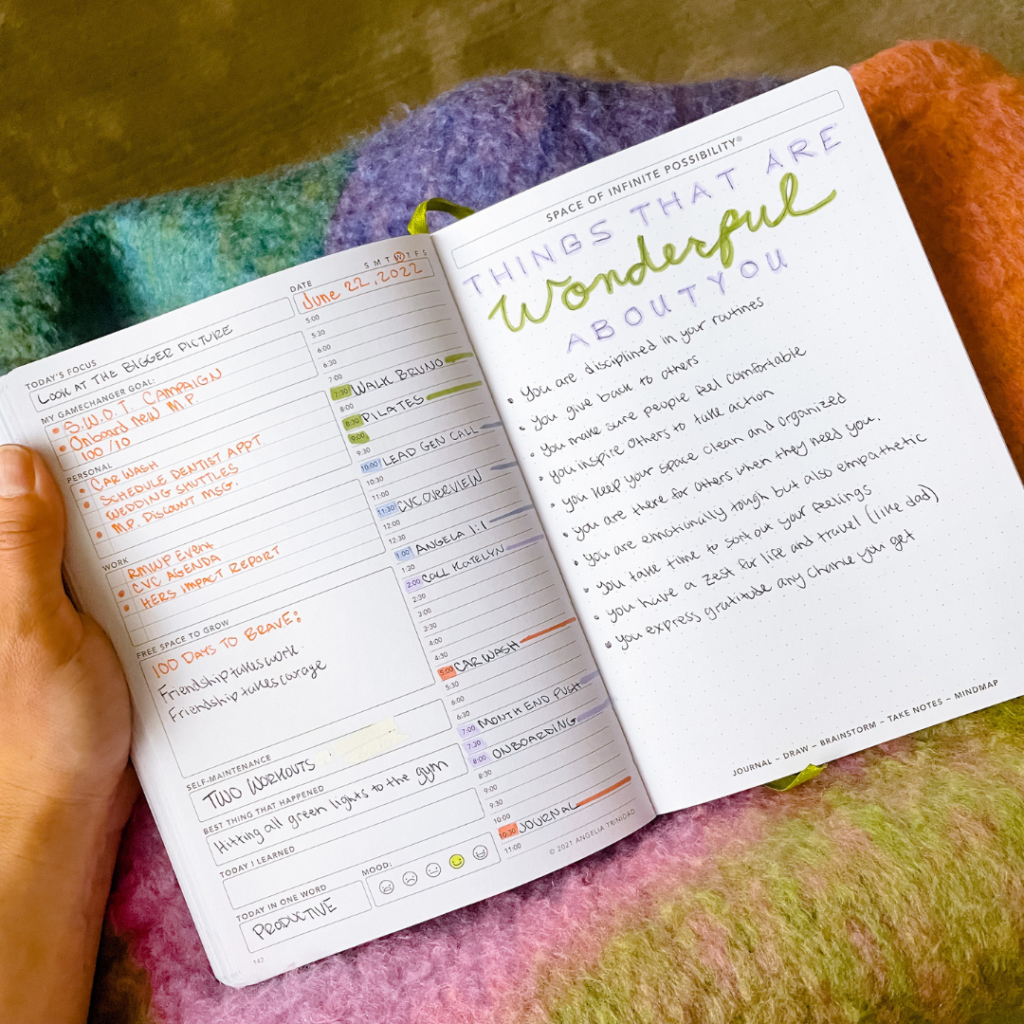 TODAY'S FOCUS
LOOK AT THE BIGGER PICTURE
DATE
S M T W T F S
June 22, 2022
MY GAMECHANGER GOAL:
• S.W.O.T. CAMPAIGN
• Onboard new M.P.
100/10
PERSONAL
• CAR WASH
SCHEDULE DENTIST APPT
• WEDDING SHUTTLES
• M.P. DISCOUNT MSG.
WORK
• RMWP EVENT
• CVC AGENDA
• HERS IMPACT REPORT
FREE SPACE TO GROW
100 DAYS TO BRAVE:
Friendship takes work
Friendship takes courage
SELF-MAINTENANCE
TWO WORKOUTS
BEST THING THAT HAPPENED
Hitting all green lights to the gym
TODAY I LEARNED
TODAY IN ONE WORD
PRODUCTIVE
MOOD:
142
5:00
5:30
6:00
6:30
7:00
7:30 WALK BRUNO
8:00
8:30 PILATES
9:00
9:30
10:00 LEAD GEN CALL
10:30
11:00
11:30 CVC OVERVIEW
12:00
12:30
1:00 ANGELA 1:1
1:30
2:00 CALL KATELYN
2:30
3:00
3:30
4:00
4:30
5:00 CAR WASH
5:30
6:00
6:30
7:00 MONTH END PUSH
7:30
8:00 ONBOARDING
8:30
9:00
9:30
10:00
10:30 JOURNAL
11:00
© 2021 ANGELIA TRINIDAD
SPACE OF INFINITE POSSIBILITY®
THINGS THAT ARE
Wonderful
ABOUT YOU
• You are disciplined in your routines
• You give back to others
• You make sure people feel comfortable
• you inspire others to take action
• you keep your space clean and organized
• you are there for others when they need you.
• you are emotionally tough but also empathetic
• you take time to sort out your feelings
• you have a zest for life and travel (like dad)
• you express gratitude any chance you get
JOURNAL ~ DRAW ~ BRAINSTORM ~ TAKE NOTES ~ MINDMAP